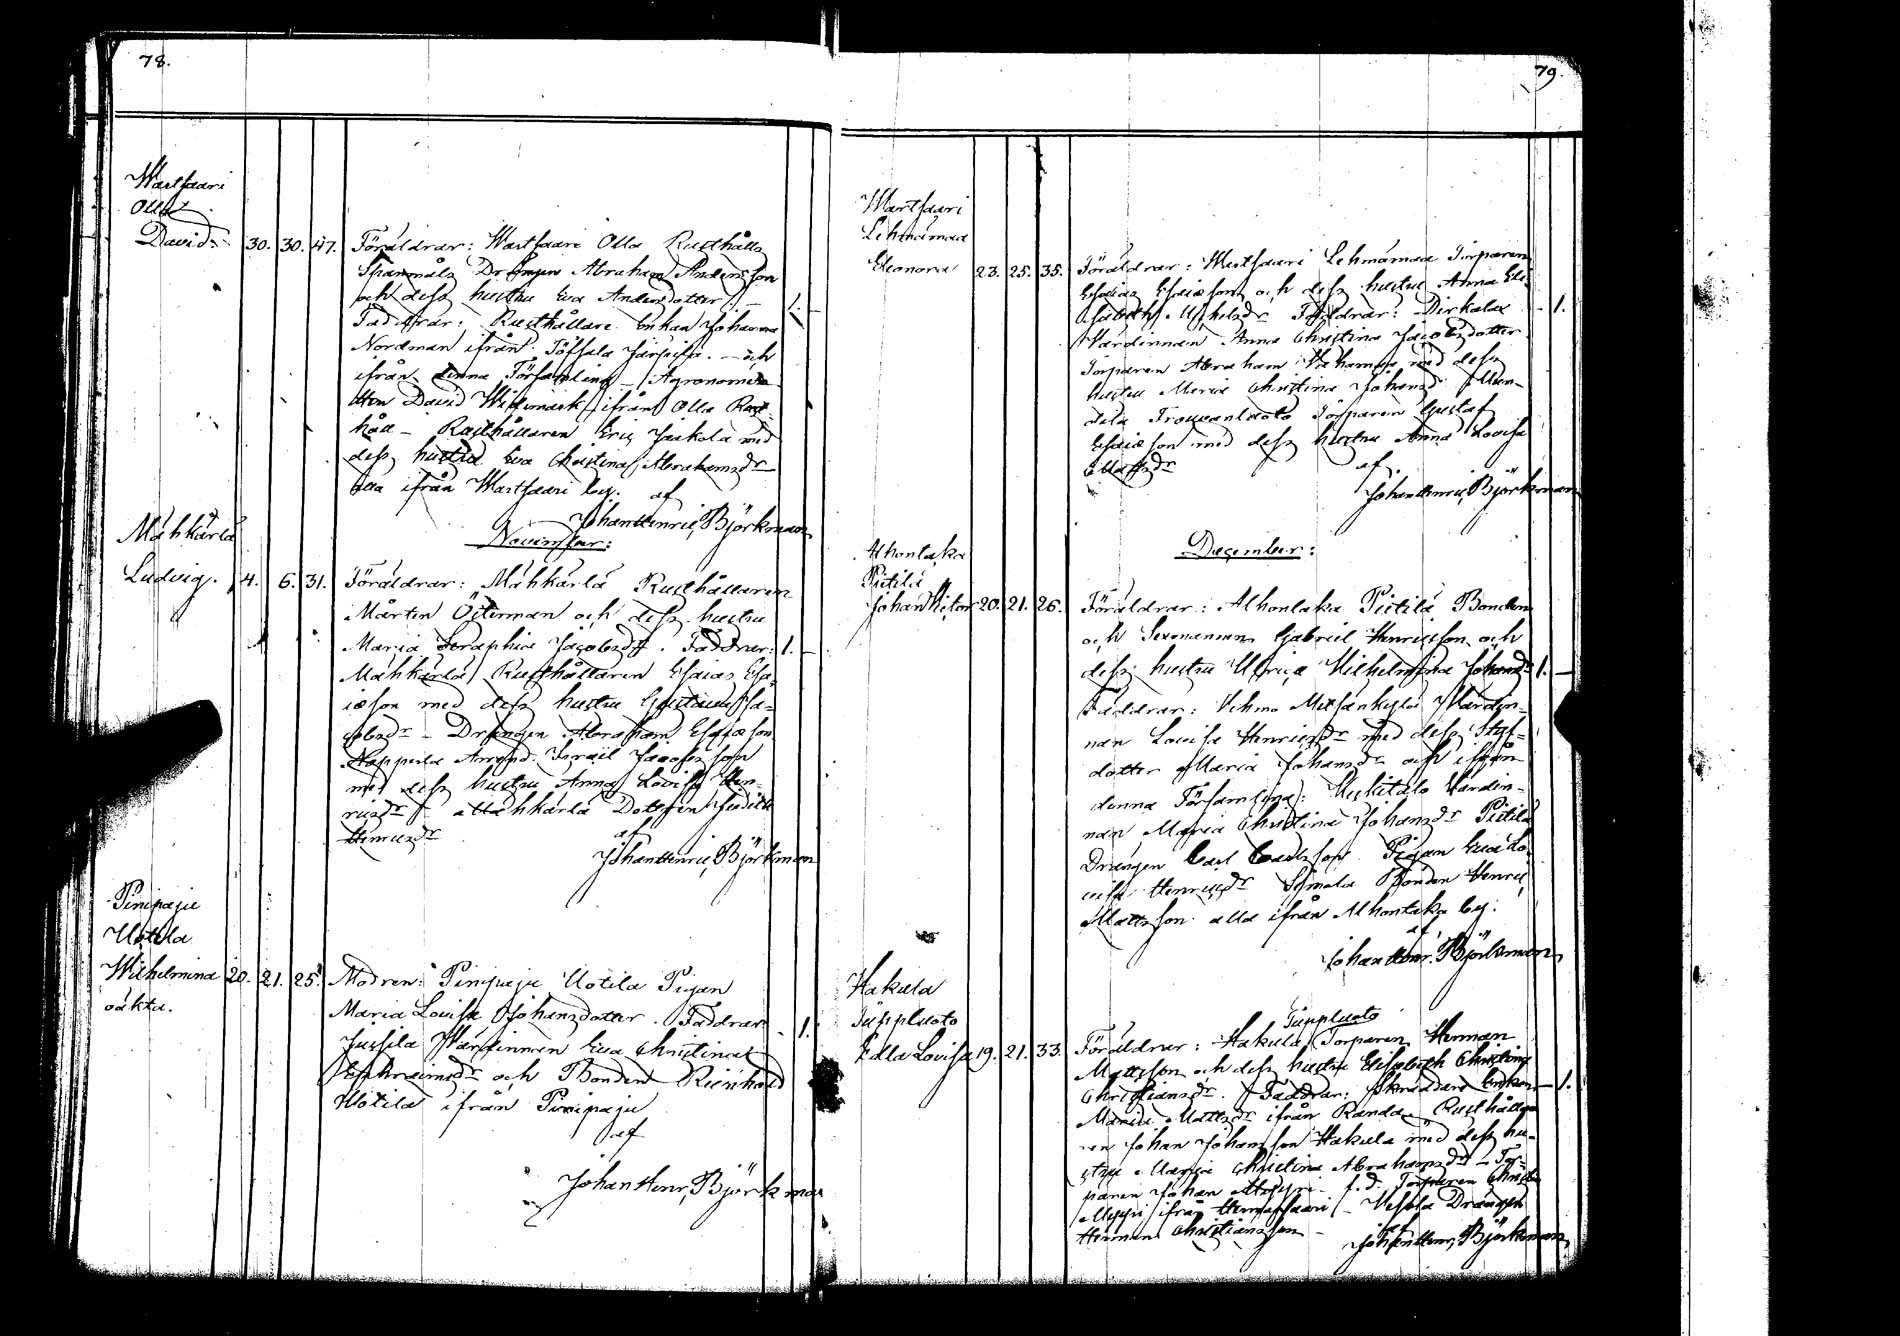 78.
Wartsaari
Olla
David. 30. 30. 47. Föräldrar: Wartsaari Olla Rusthålls
Spanmåls Drängen Abraham Andersson
och dess hustru Eva Andersdotter. — 1. —
Faddrar: Rusthållare Enkan Johanna
Nordman ifrån Töffsala — och
ifrån denna Församling —
David Widemark ifrån Olla Rust-
håll — Rusthållaren Eric Jaakola med
dess hustru Eva Christina Abrahamsdr
alla ifrån Wartsaari by. af
Johan Henric Björkman
November:
Mähkärlä
Ludvig. 4. 6. 31. Föräldrar: Mähkärlä Rusthållaren
Mårten Österman och dess hustru
Maria Seraphia Jacobsdr. Faddrar: 1. —
Mähkärlä Rusthållaren Esaias Esa-
iæson med dess hustru Gustava Ja-
cobsdr — Drängen Abraham Esaiæson
Israël Jacobsson
med dess hustru Anna Lovisa Hen-
ricsdr — Mähkärlä Dottren
Henricsdr
af
Johan Henric Björkman
Pinipaju
Uotila
Wilhelmina 20. 21. 25. Modren: Pinipaju Uotila Pigan
oäkta.
Maria Lovisa Johansdotter. Faddrar - 1.
Jussila Värdinnan Eva Christina
Ephraimsdr och Bonden Reinhold
Uotila ifrån Pinipaju
af
Johan Henr. Björkman
79.
Wartsaari
Lehmämaa
Eleonora 23. 25. 35. Föräldrar: Wartsaari Lehmämaa Torparen
Esaias Esaiæson och dess hustru Anna Eli-
sabeth Michelsdr Faddrar: Dirkala - 1.
Värdinnan Anna Christina Jacobsdotter
Torparen Abraham med dess
hustru Maria Christina Johansdr
Torparen Gustaf
Esaiæson med dess hustru Anna Lovisa
Mattsdr af
Johan Henric Björkman
December:
Alhontaka
Pietilä
Johan Victor 20. 21. 26. Föräldrar: Alhontaka Pietilä Bonden
och Sexmannen Gabriel Henricsson och
dess hustru Ulrica Wilhelmina Johansdr 1. —
Faddrar: Vehmo Värdin-
nan Lovisa Henricsdr med dess styf-
dotter Maria Johansdr och ifrån
denna Församling: Uskitalo Värdin-
nan Maria Christina Johansdr Pietilä
Drängen Carl Carlsson Pigan Eva Lo-
visa Henricsdr Bonden Henric
Mattsson alla ifrån Alhontaka by.
af
Johan Henr. Björkman
Hakula
Tuppluoto
Edla Lovisa 19. 21. 33. Föräldrar: Hakula Tuppluoto Torparen Herman
Mattsson och dess hustru Elisabeth Christina
Christiansdr. Faddrar: Skräddare Enkan — 1.
Maria Mattsdr ifrån Randa Rusthålla-
ren Johan Johansson Hakula med dess hu-
stru Maria Christina Abrahamsdr — Tor-
paren Johan f.d. Torparen
ifrån — Drängen
Herman Christiansson — af
Johan Henr. Björkman